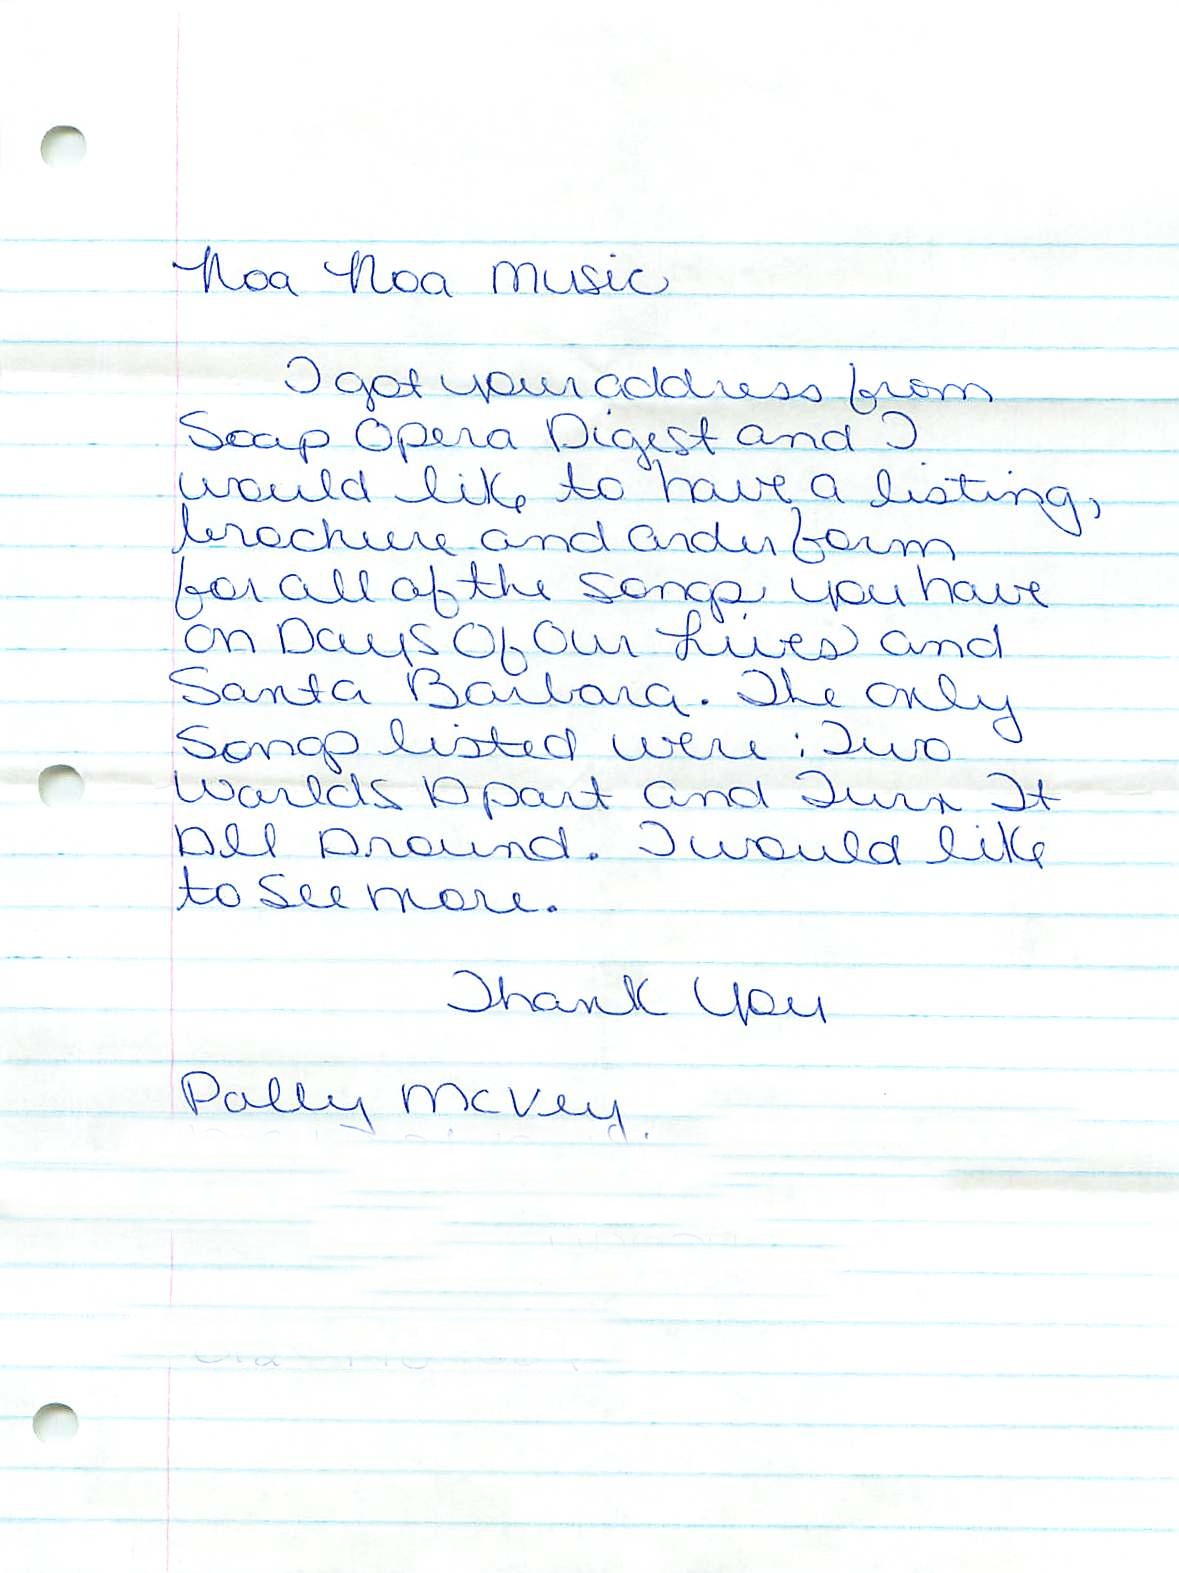 Noa Noa Music
I got your address from
Soap Opera Digest and I
would like to have a listing,
brochure and order form
for all of the songs you have
on Days Of Our Lives and
Santa Barbara. The only
songs listed were: Two
Worlds Apart and Turn It
All Around. I would like
to see more.
Thank You
McVey